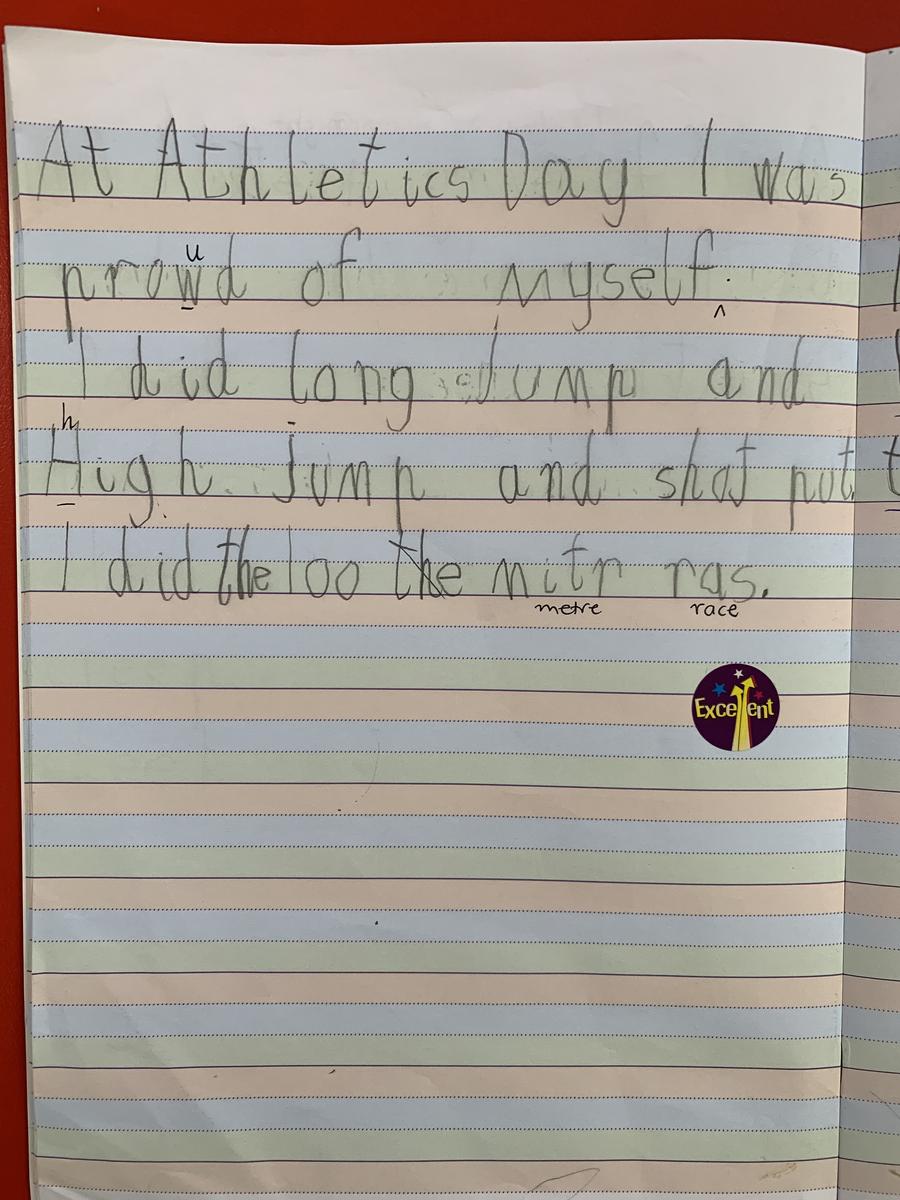 At Athletics Day I was
u
prowd of myself.
^
I did long Jump and
h
High jump and shot put
I did the 100 the mitr ras.
metre race
Excellent